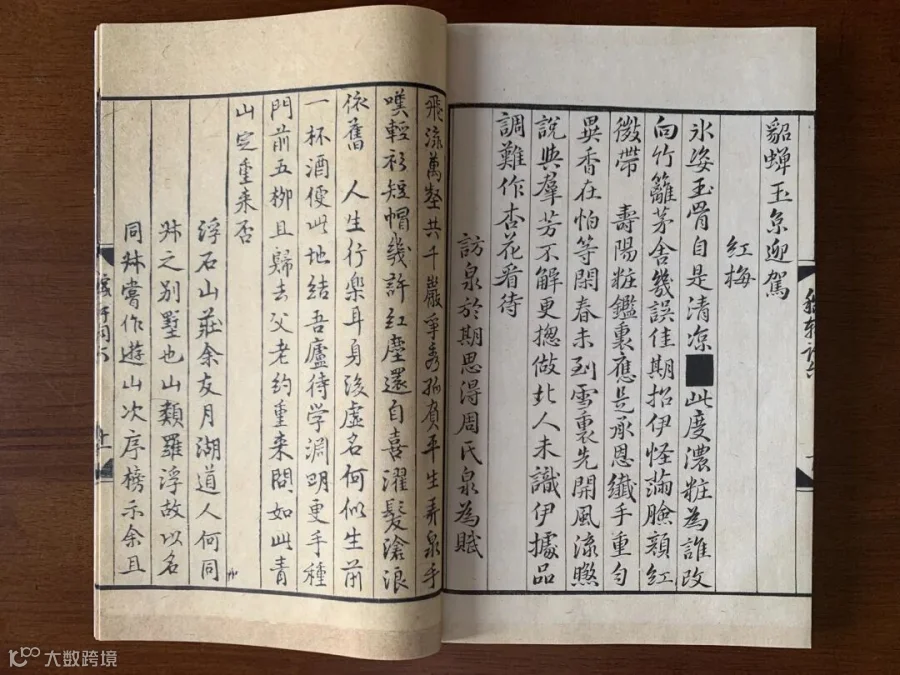 貂蟬玉京迎駕
紅梅
氷姿玉骨自是清凉■此度濃粧為誰改
向竹籬茅舍幾誤佳期招伊怪滿臉顔紅
微帶 壽陽粧鑑裏應是承恩纖手重勻
異香在怕等閑春未到雪裏先開風流㬠
說與羣芳不解更揔做北人未識伊據品
調難作杏花看待
訪泉於期思得周氏泉為賦
飛流萬壑共千巖爭秀孤負平生弄泉手
嘆輕衫短帽幾許紅塵還自喜濯髮滄浪
依舊 人生行樂耳身後虛名何似生前
一杯酒便此地結吾廬待学淵明更手種
門前五柳且歸去父老約重来問如此青
山定重来否
浮石山莊余友月湖道人何同
叔之別墅也山類羅浮故以名
同叔嘗作遊山次序榜示余且
大数跨境